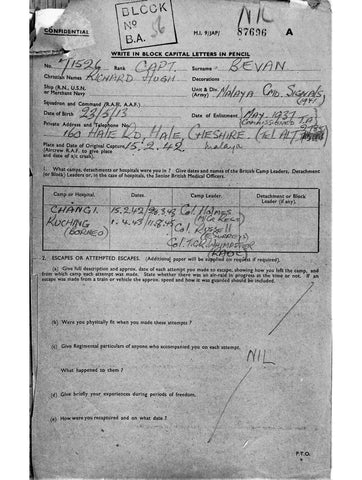 BLOCK
No
B.A. 6
NIL
CONFIDENTIAL
M.I. 9/JAP/ 87696 A
WRITE IN BLOCK CAPITAL LETTERS IN PENCIL
No. 71526 Rank CAPT. Surname BEVAN
Christian Names RICHARD HUGH Decorations
Ship (R.N., U.S.N. or Merchant Navy) Unit & Div. (Army) MALAYA CMD. SIGNALS (1941)
Squadron and Command (R.A.F., A.A.F.)
Date of Birth 23/5/13 Date of Enlistment MAY. 1937
(COMMISSIONED T.A.)
Private Address and Telephone No.
160 HALE RD, HALE, CHESHIRE. (TEL ALT
Place and Date of Original Capture 15.2.42 malaya
(Aircrew R.A.F. to give place and date of a/c crash).
1. What camps, detachments or hospitals were you in? Give dates and names of the British Camp Leaders, Detachment (or Block) Leaders or, in the case of hospitals, the Senior British Medical Officers.
Camp or Hospital. Dates. Camp Leader. Detachment or Block Leader (if any).
CHANGI. 15.2.42/28.3.43 COL. HOLMES
KUCHING (BORNEO) 1.4.43/11.9.45 COL. RUSSELL
COL. WHIMSTER
(RAOC)
2. ESCAPES OR ATTEMPTED ESCAPES. (Additional paper will be supplied on request if required).
(a) Give full description and approx. date of each attempt you made to escape, showing how you left the camp, and from which camp each attempt was made. State whether there was an air-raid in progress at the time or not. If an escape was made from a train or vehicle the approx. speed and how it was guarded should be included.
(b) Were you physically fit when you made these attempts?
(c) Give Regimental particulars of anyone who accompanied you on each attempt.
NIL
What happened to them?
(d) Give briefly your experiences during periods of freedom.
(e) How were you recaptured and on what date?
P.T.O.